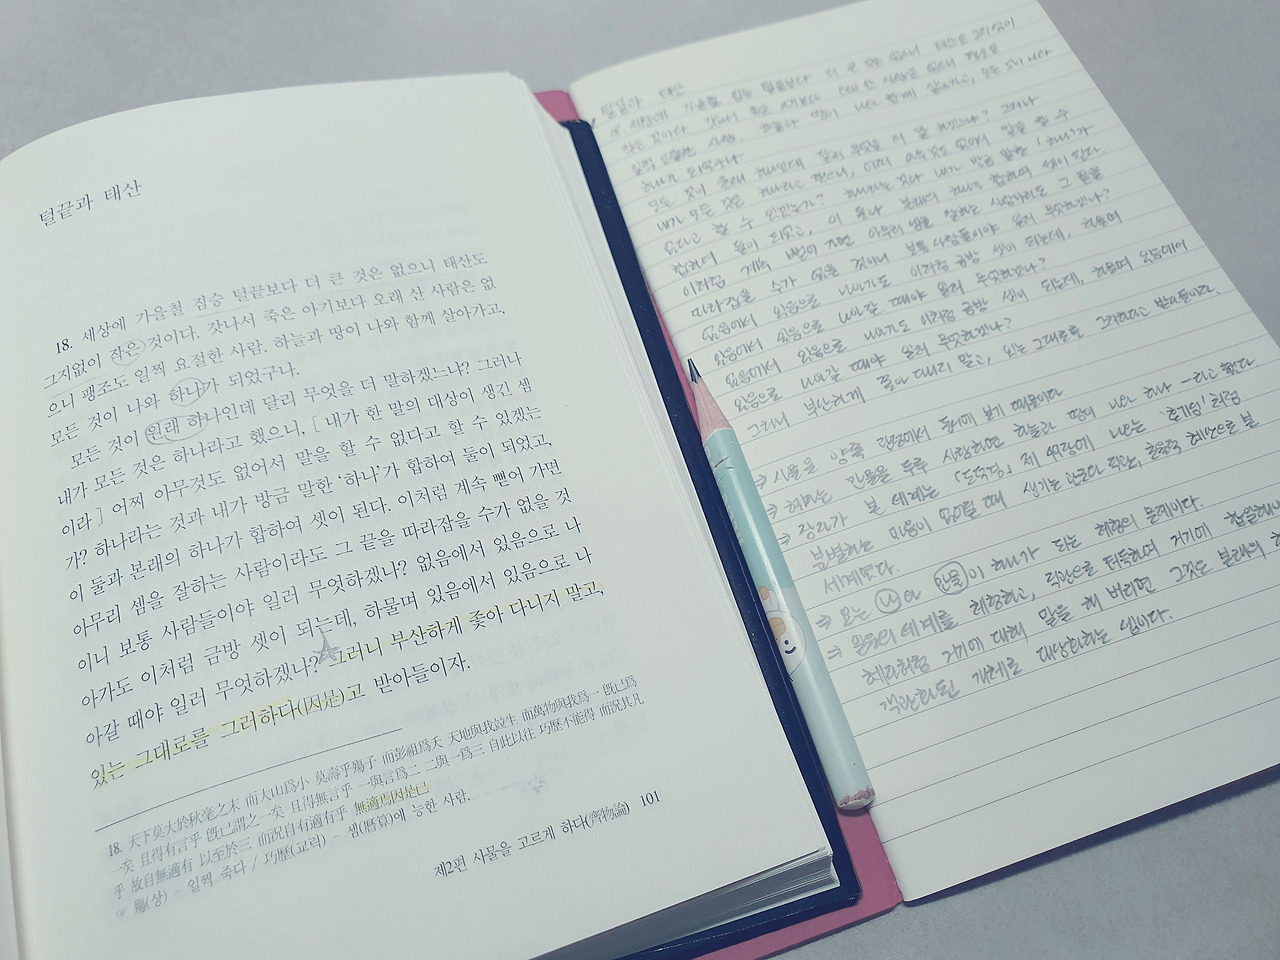 털끝과 태산
18. 세상에 가을철 짐승 털끝보다 더 큰 것은 없으니 태산도
그지없이 작은 것이다. 갓나서 죽은 아기보다 오래 산 사람은 없
으니 팽조도 일찍 요절한 사람. 하늘과 땅이 나와 함께 살아가고,
모든 것이 나와 하나가 되었구나.
모든 것이 원래 하나인데 달리 무엇을 더 말하겠느냐? 그러나
내가 모든 것은 하나라고 했으니, [ 내가 한 말의 대상이 생긴 셈
이라 ] 어찌 아무것도 없어서 말을 할 수 없다고 할 수 있겠는
가? 하나라는 것과 내가 방금 말한 '하나'가 합하여 둘이 되었고,
이 둘과 본래의 하나가 합하여 셋이 된다. 이처럼 계속 뻗어 가면
아무리 셈을 잘하는 사람이라도 그 끝을 따라잡을 수가 없을 것
이니 보통 사람들이야 일러 무엇하겠나? 없음에서 있음으로 나
아가도 이처럼 금방 셋이 되는데, 하물며 있음에서 있음으로 나
아갈 때야 일러 무엇하겠나? 그러니 부산하게 좇아 다니지 말고,
있는 그대로를 그러하다(因是)고 받아들이자.
18. 天下莫大於秋毫之末 而大山爲小 莫壽乎殤子 而彭祖爲夭 天地與我竝生 而萬物與我爲一 旣已爲
一矣 且得有言乎 旣已謂之一矣 且得無言乎 一與言爲二 二與一爲三 自此以往 巧歷不能得 而況其凡
乎 故自無適有 以至於三 而況自有適有乎 無適焉因是已
殤(상) – 일찍 죽다 / 巧歷(교력) – 셈(曆算)에 능한 사람.
제2편 사물을 고르게 하다(齊物論) 101
털끝과 태산
18. 세상에 가을철 짐승 털끝보다 더 큰 것은 없으니 태산도 그지없이
작은 것이다. 갓나서 죽은 아기보다 오래 산 사람은 없으니 팽조도
일찍 요절한 사람. 하늘과 땅이 나와 함께 살아가고, 모든 것이 나와
하나가 되었구나.
모든 것이 원래 하나인데 달리 무엇을 더 말하겠느냐? 그러나
내가 모든 것은 하나라고 했으니, 어찌 아무것도 없어서 말을 할 수
없다고 할 수 있겠는가? 하나라는 것과 내가 방금 말한 '하나'가
합하여 둘이 되었고, 이 둘과 본래의 하나가 합하여 셋이 된다.
이처럼 계속 뻗어 가면 아무리 셈을 잘하는 사람이라도 그 끝을
따라잡을 수가 없을 것이니 보통 사람들이야 일러 무엇하겠나?
없음에서 있음으로 나아가도 이처럼 금방 셋이 되는데, 하물며
있음에서 있음으로 나아갈 때야 일러 무엇하겠나?
없음에서 있음으로 나아가도 이처럼 금방 셋이 되는데, 하물며 있음에서
있음으로 나아갈 때야 일러 무엇하겠나?
그러니 부산하게 좇아 다니지 말고, 있는 그대로를 그러하다고 받아들이자.
⇒ 사물을 양쪽 관점에서 동시에 보기 때문이다
⇒ 혜시는 만물을 두루 사랑하면 하늘과 땅이 나와 하나 ―라고 했다
⇒ 장자가 본 세계는 「도덕경」 제 49장에 나오는 처럼
분별하는 마음이 없어질 때 생기는 직관, 혜안으로 본
세계였다.
⇒ 모든 나와 만물이 하나가 되는 체험의 문제이다.
⇒ 일종의 세계를 체험하고, 직관으로 터득하여 거기에
혜자처럼 거기에 대해 말을 해 버리면 그것은 본래의
객관화된 개체로 대상화하는 셈이다.